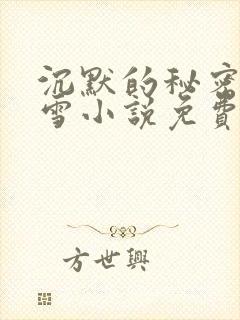 沉默的秘密
雪小説免費
方世興